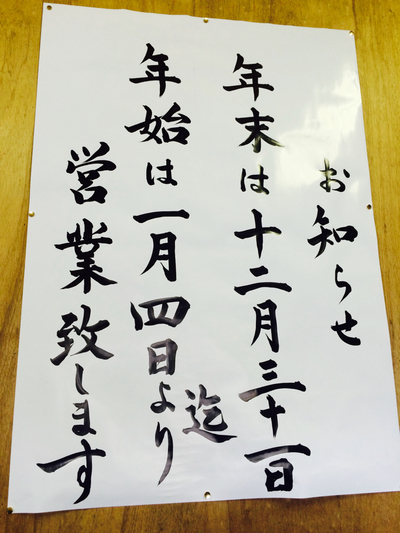 お知らせ
年末は十二月三十一日迄
年始は一月四日より
営業致します